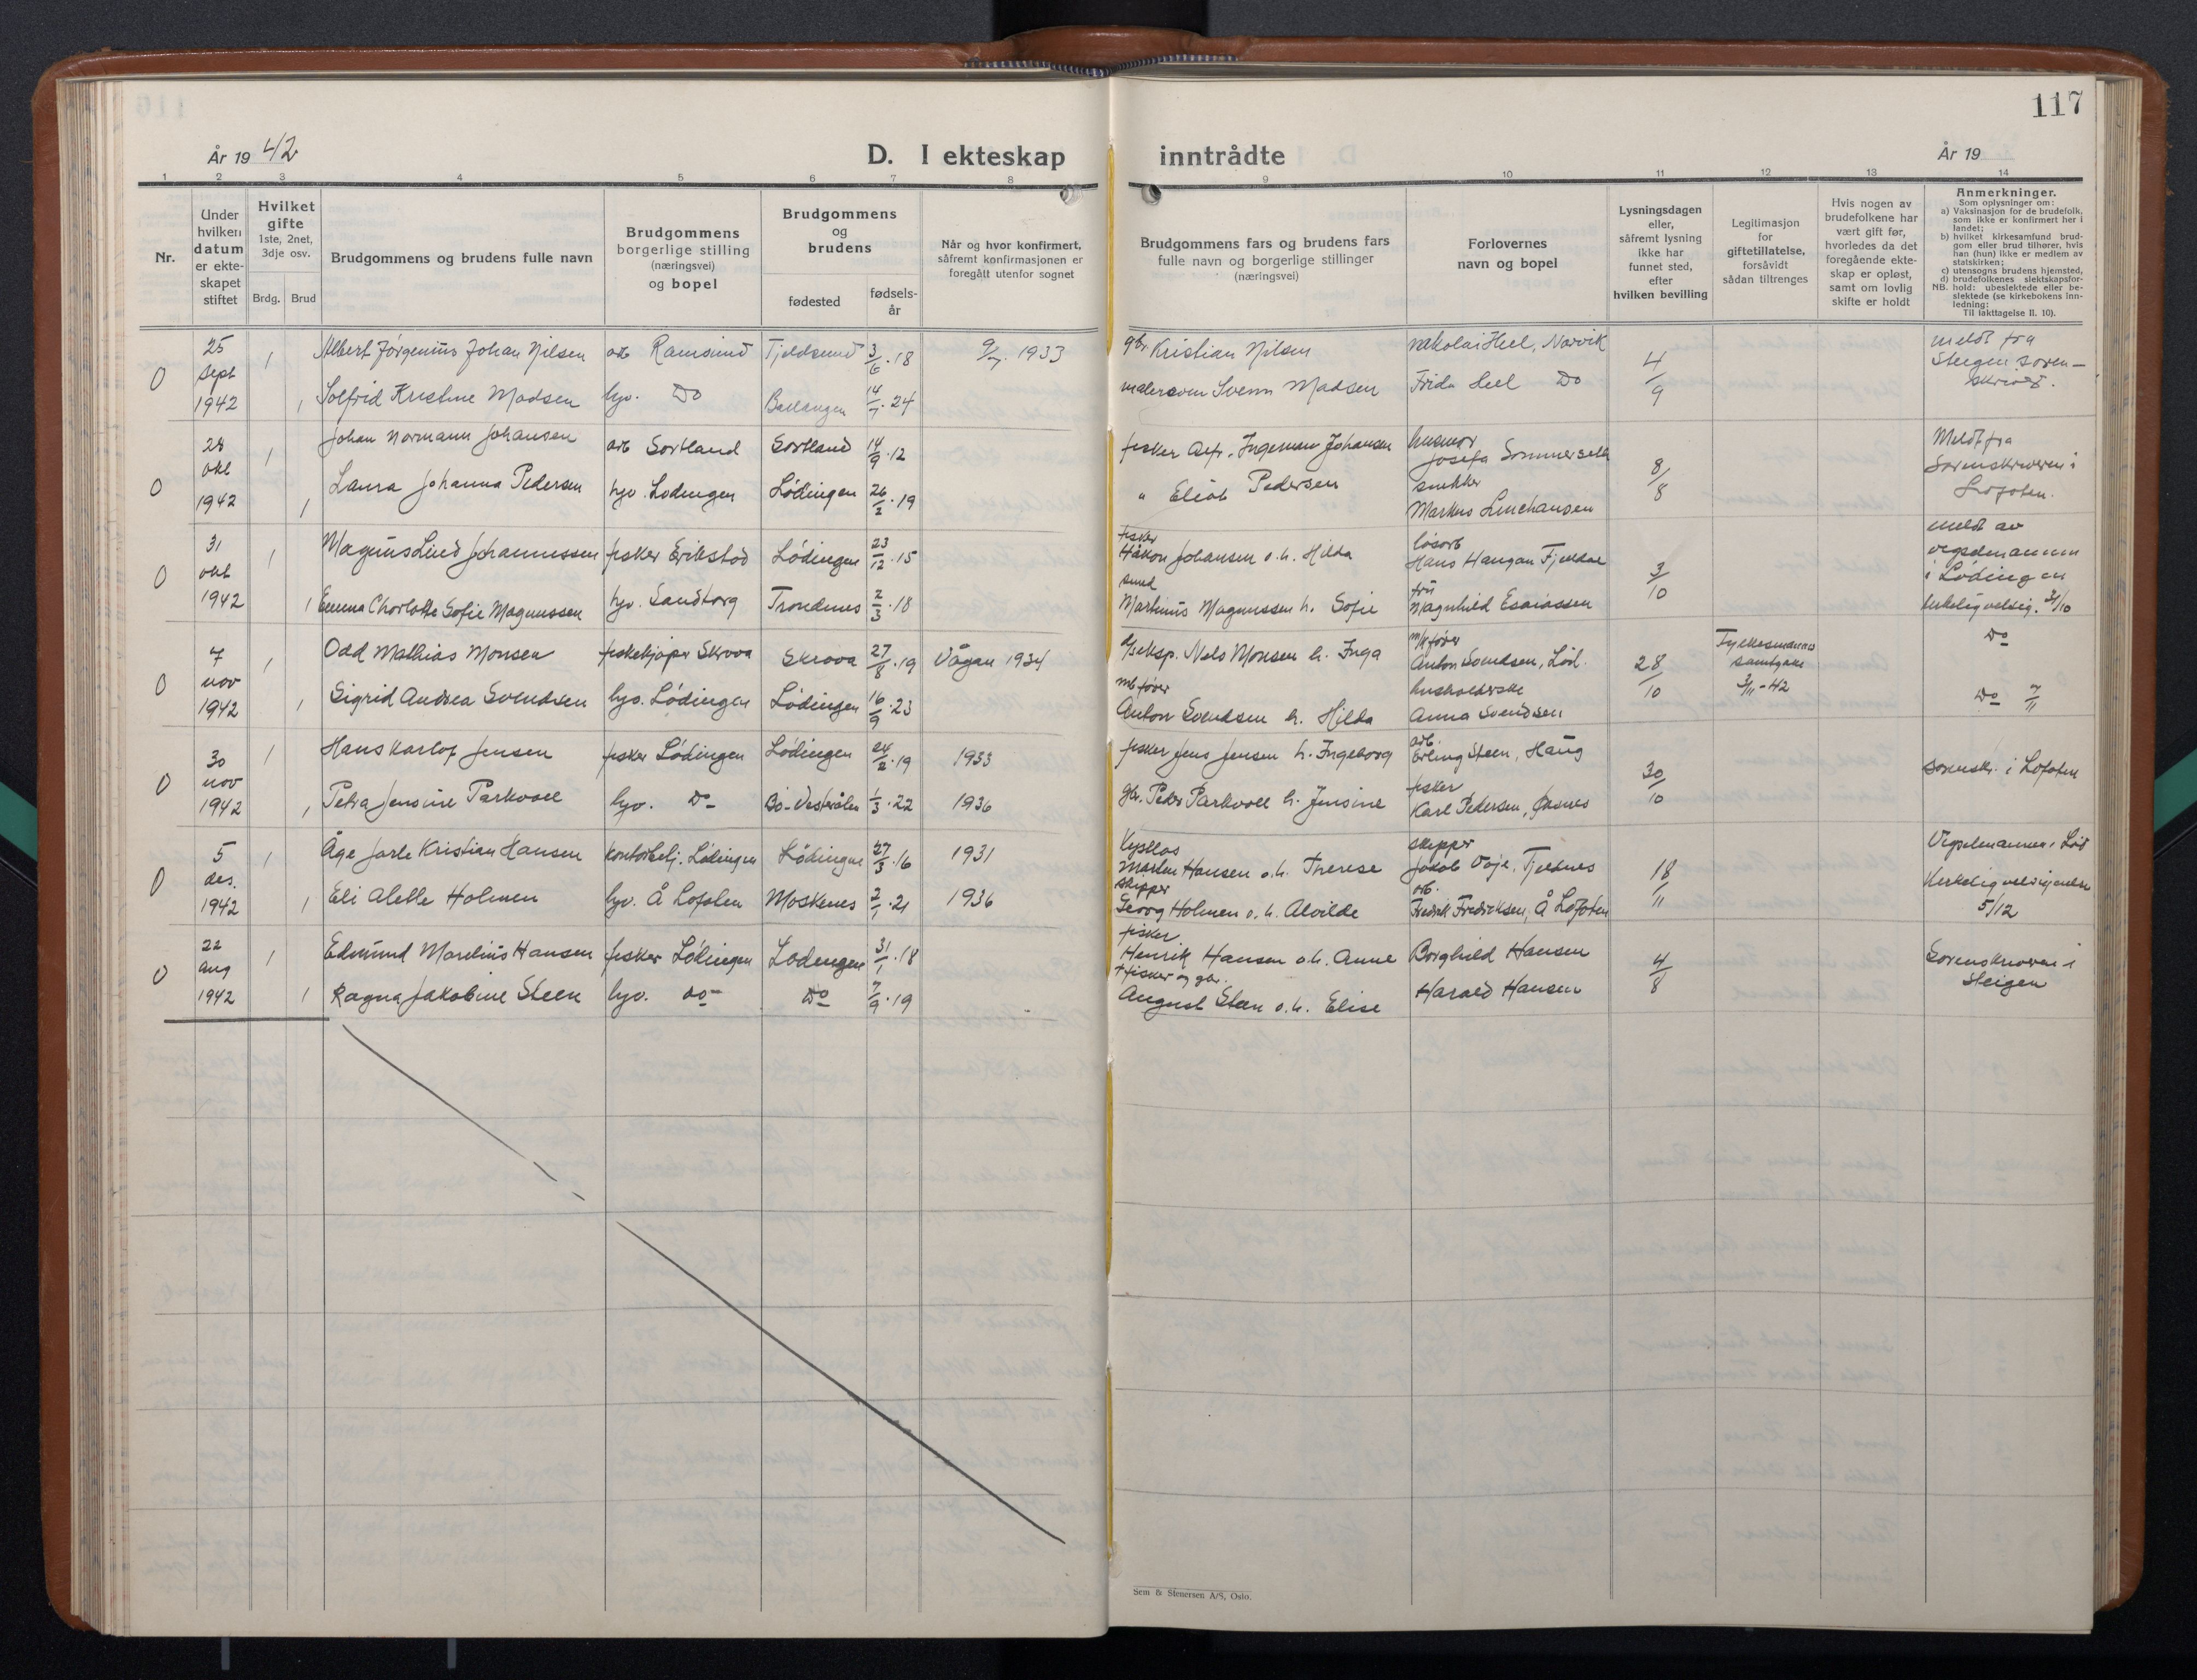 117
År 1942
D. I ekteskap inntrådte
År 19
1 2 3 4 5 6 7 8 9 10 11 12 13 14
Nr.
Under hvilken datum er ekteskapet stiftet
Hvilket gifte
1ste, 2net, 3dje osv.
Brdg. Brud
Brudgommens og brudens fulle navn
Brudgommens borgerlige stilling (næringsvei) og bopel
Brudgommens og brudens
fødested
fødselsår
Når og hvor konfirmert, såfremt konfirmasjonen er foregått utenfor sognet
Brudgommens fars og brudens fars fulle navn og borgerlige stillinger (næringsvei)
Forlovernes navn og bopel
Lysningsdagen eller, såfremt lysning ikke har funnet sted, efter hvilken bevilling
Legitimasjon for giftetillatelse, forsåvidt sådan tiltrenges
Hvis nogen av brudefolkene har vært gift før, hvorledes da det foregående ekteskap er opløst, samt om lovlig skifte er holdt
Anmerkninger.
Som oplysninger om:
a) Vaksinasjon for de brudefolk, som ikke er konfirmert her i landet;
b) hvilket kirkesamfund brudgom eller brud tilhører, hvis han (hun) ikke er medlem av statskirken;
c) utensogns brudens hjemsted,
d) brudefolkenes slektskapsforhold: ubeslektede eller beslektede (se kirkebokens innledning:
NB.
Til iakttagelse II. 10).
0 25 sept 1942 1 Albert Jørgenius Johan Nilsen arb Ramsund Tjeldsund 3/6.18 9/7.1933 gbr Kristian Nilsen Nikolai Heel, Narvik 4/9 meldt fra Steigen sorenskriveri.
1 Solfrid Kristine Madsen hjv. Do Ballangen 14/7.24 malersven Svenn Madsen Frida Heel Do
0 28 okt 1942 1 Johan Normann Johansen arb Sortland Sortland 14/9.12 fisker Alfr. Ingeman Johansen husmor Josefa Sommerseth 8/8 Meldt fra Sorenskriveren i Lofoten.
1 Laura Johanna Pedersen hjv. Lødingen Lødingen 26/2.19 " Eliot Pedersen snekker Markus
0 31 okt 1942 1 Magnus Lind Johannessen fisker Erikstad Lødingen 23/12.15 fisker Håkon Johansen o.h. Hilda løsarb Hans Haugan Fjeldal 3/10 meldt av vigselmannen i Lødingen kirkelig velsig. 31/10
1 Emma Charlotte Sofie Magnussen hjv. Sandtorg Trondenes 2/3.18 smed Martinus Magnussen h. Sofie fru Magnhild Esaiassen
0 7 nov 1942 1 Odd Mathias Monsen fiskekjøper Skrova Skrova 27/8.19 Vågan 1934 d/seksp. Nels Monsen h. Inga m/k fører Anton Svendsen, Lød. 28/10 Fylkesmannens samtykke 3/11-42 Do
1 Sigrid Andrea Svendsen hjv. Lødingen Lødingen 16/9.23 mb fører Anton Svendsen h. Hilda husholderske Anna Svendsen Do 7/11
0 30 nov 1942 1 Hans Karlof Jensen fisker Lødingen Lødingen 24/2.19 1933 fisker Jens Jensen h. Ingeborg arb. Erling Steen, Haug 30/10 sorenskr. i Lofoten
1 Petra Jensine Parkvoll hjv. Do Bø-Vesterålen 1/3.22 1936 gbr. Peder Parkvoll h. Jensine fisker Karl Pedersen, Øksnes
0 5 des. 1942 1 Åge Jarle Kristian Hansen kontorbetj. Lødingen Lødingen 27/3.16 1931 Kystlos Morten Hansen o.h. Therese skipper Jakob Voje, Tjeldnes 18/11 Vigselmannen i Lød Kirkelig velsignelse 5/12
1 Eli Alette Holmen hjv. Å Lofoten Moskenes 2/1.21 1936 skipper Georg Holmen o.h. Alvilde arb. Fredrik Fredriksen, Å Lofoten
0 22 aug 1942 1 Edmund Marelius Hansen fisker Lødingen Lødingen 31/1.18 fisker Henrik Hansen o.h. Anne Borghild Hansen 4/8 Sorenskriveren i Steigen
1 Ragna Jakobine Steen hjv. do Do 7/9.19 fisker og gbr. August Steen o.h. Elise Harald Hansen
Sem & Stenersen A/S, Oslo.